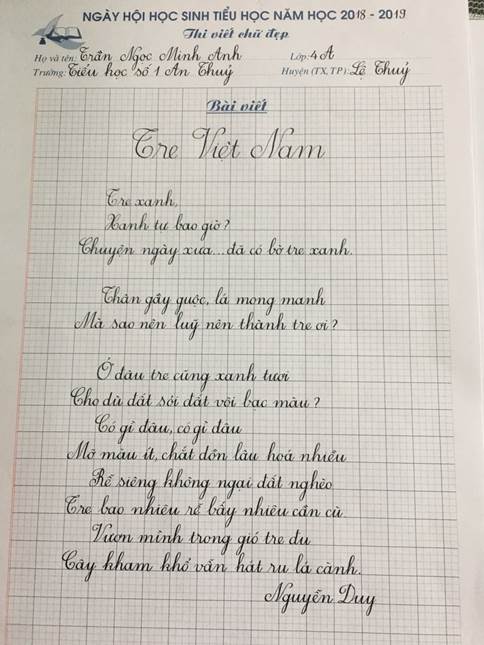 NGÀY HỘI HỌC SINH TIỂU HỌC NĂM HỌC 2018 - 2019
Thi viết chữ đẹp
Họ và tên: Trần Ngọc Minh Anh Lớp: 4A
Trường: Tiểu học số 1 An Thuỷ Huyện (TX, TP): Lệ Thuỷ
Bài viết
Tre Việt Nam
Tre xanh,
Xanh tự bao giờ?
Chuyện ngày xưa... đã có bờ tre xanh.
Thân gầy guộc, lá mong manh
Mà sao nên luỹ nên thành tre ơi?
Ở đâu tre cũng xanh tươi
Cho dù đất sỏi đất vôi bạc màu?
Có gì đâu, có gì đâu
Mỡ màu ít, chắt dồn lâu hoá nhiều
Rễ siêng không ngại đất nghèo
Tre bao nhiêu rễ bấy nhiêu cần cù
Vươn mình trong gió tre đu
Cây kham khổ vẫn hát ru lá cành.
Nguyễn Duy